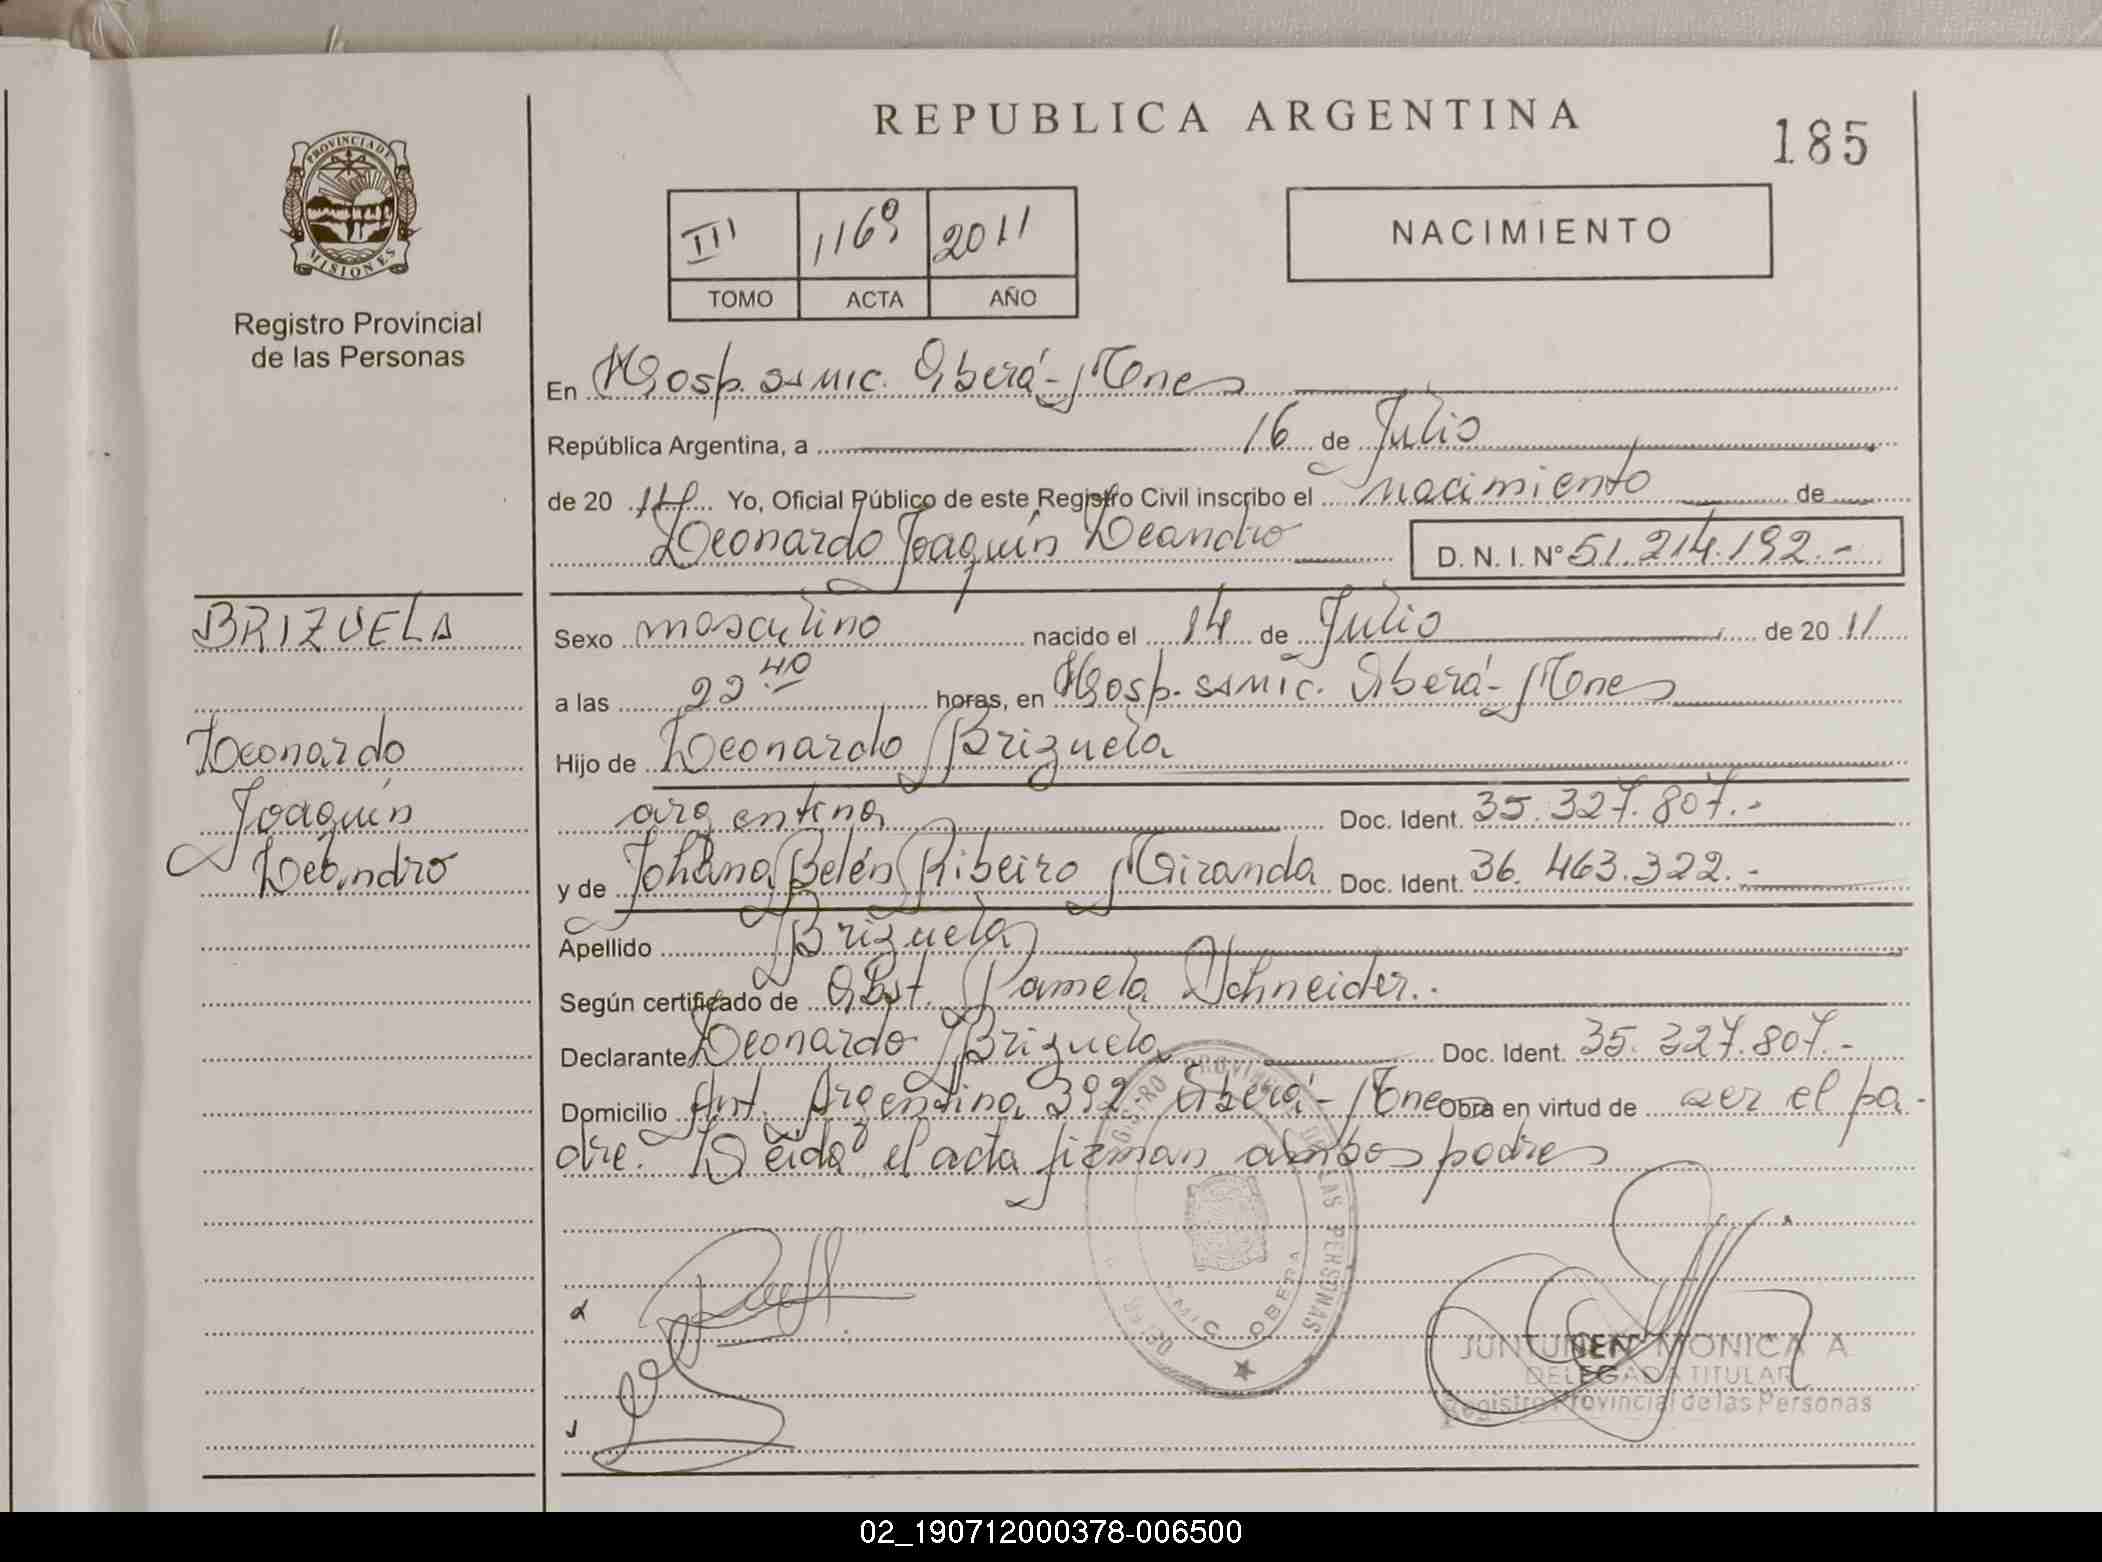 REPUBLICA ARGENTINA
185
PROVINCIA DE
MISIONES
Registro Provincial
de las Personas
III 1169 2011
TOMO ACTA AÑO
NACIMIENTO
En Hosp. SAMIC. Oberá - Mnes
República Argentina, a 16 de Julio
de 20 11 Yo, Oficial Público de este Registro Civil inscribo el nacimiento de
Leonardo Joaquín Leandro D. N. I. Nº 51.214.192.-
BRIZUELA
Leonardo
Joaquín
Leandro
Sexo masculino nacido el 14 de Julio de 20 11
a las 22 40 horas, en Hosp. SAMIC. Oberá - Mnes
Hijo de Leonardo Brizuela
argentina Doc. Ident. 35.327.807.-
y de Johana Belén Ribeiro Miranda Doc. Ident. 36.463.322.-
Apellido Brizuela
Según certificado de Obst. Pamela Schneider.-
Declarante Leonardo Brizuela Doc. Ident. 35.327.807.-
Domicilio Ant. Argentina 392 Oberá - Mnes Obra en virtud de ser el pa-
dre. Leída el acta firman ambos padres
REGISTRO PROVINCIAL DE LAS PERSONAS
OBERA
JUNTUNEN MONICA A
DELEGADA TITULAR
Registro Provincial de las Personas
02_190712000378-006500